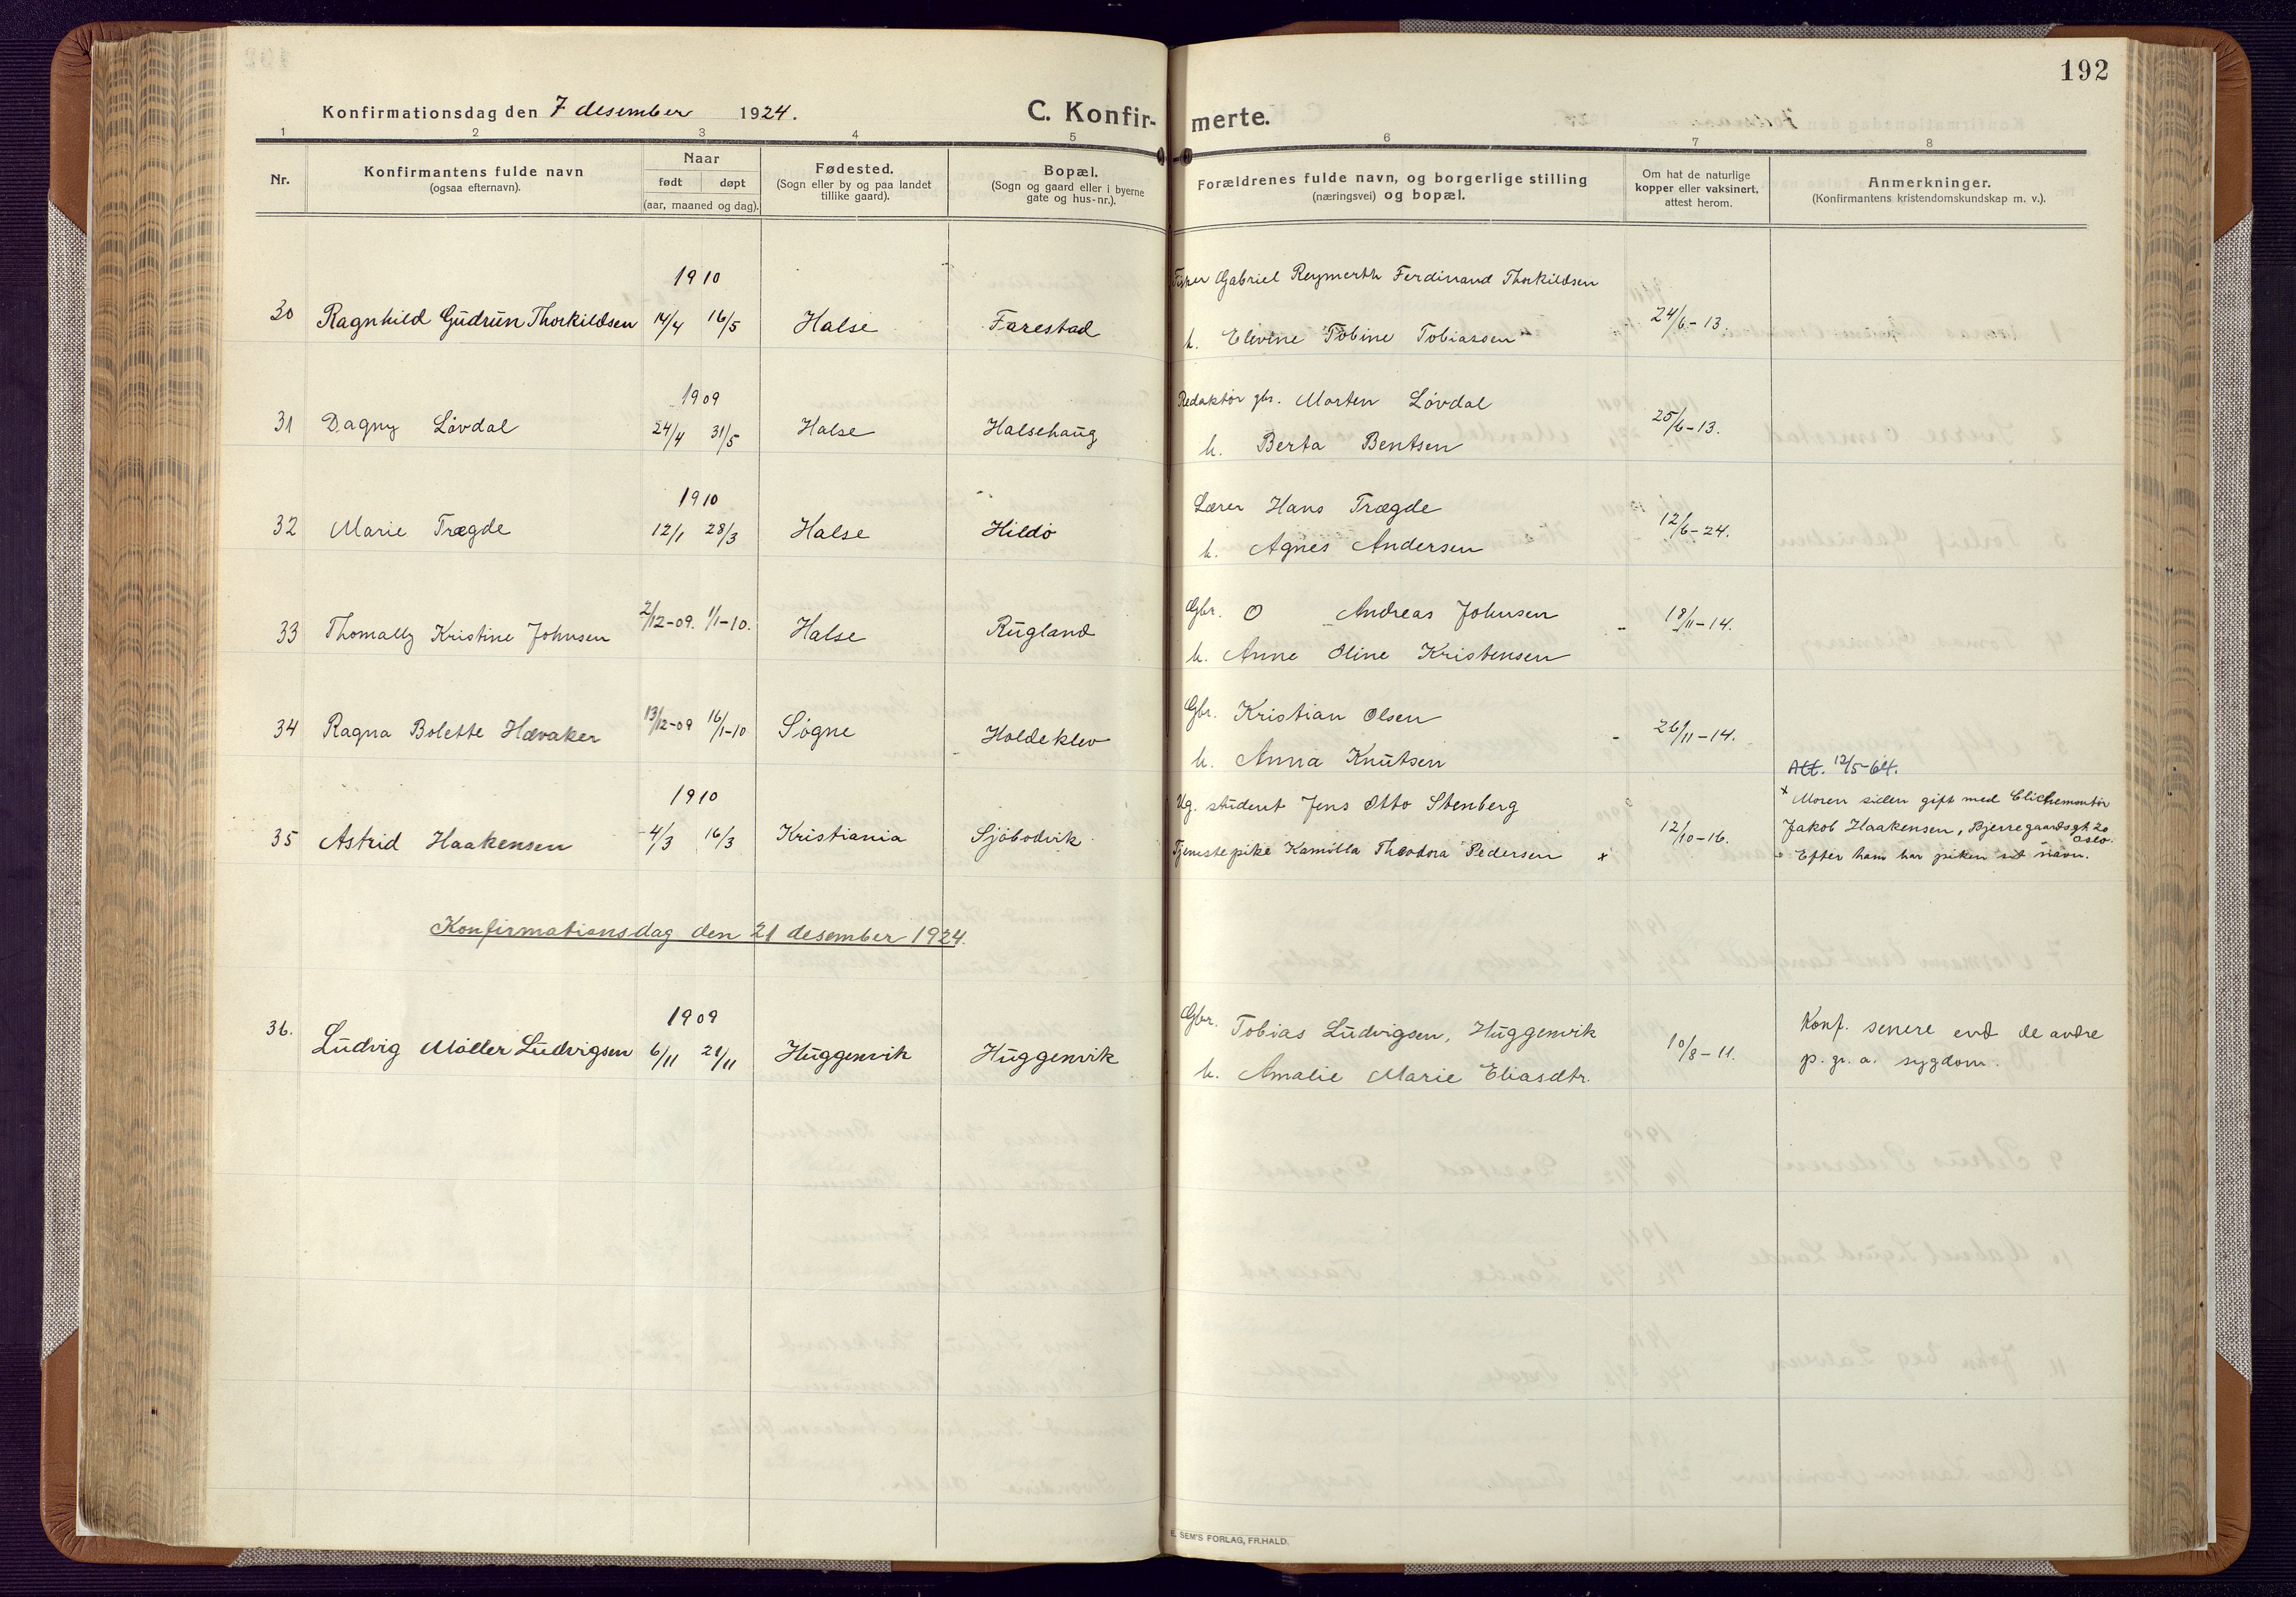 192
Konfirmationsdag den 7 desember 1924.
C. Konfir- merte.
1 2 3 4 5 6 7 8
Nr.
Konfirmantens fulde navn
(ogsaa efternavn).
Naar
født døpt
(aar, maaned og dag).
Fødested.
(Sogn eller by og paa landet
tillike gaard).
Bopæl.
(Sogn og gaard eller i byerne
gate og hus-nr.).
Forældrenes fulde navn, og borgerlige stilling
(næringsvei) og bopæl.
Om hat de naturlige
kopper eller vaksinert,
attest herom.
Anmerkninger.
(Konfirmantens kristendomskundskap m. v.).
1910 Fisker Gabriel Reymerth Ferdinand Thorkildsen
30 Ragnhild Gudrun Thorkildsen 14/4 16/5 Halse Farestad 24/6-13.
h. Elevine Tobine Tobiassen
1909 Redaktør gbr. Morten Løvdal
31 Dagny Løvdal 24/4 31/5 Halse Halsehaug 25/6-13.
h. Berta Bentsen
1910 Lærer Hans Trægde
32 Marie Trægde 12/1 28/3 Halse Hildø 12/6-24.
h. Agnes Andersen
Gbr. O Andreas Johnsen
33 Thomally Kristine Johnsen 2/12-09. 1/1-10. Halse Rugland 18/11-14.
h. Anne Oline Kristensen
Gbr. Kristian Olsen
34 Ragna Bolette Hævaker 13/12-09 16/1-10 Søgne Holdeklev 26/11-14.
h. Anna Knutsen
Att. 12/5-64.
1910 Ug. student Jens Otto Stenberg x Moren siden gift med Clichemontør
35 Astrid Haakensen 4/3 16/3 Kristiania Sjøbodvik 12/10-16. Jakob Haakensen, Bjerregaardsgt. 20
Oslo.
Tjenstepike Kamilla Theodora Pedersen x Efter ham har piken sit navn.
Konfirmationsdag den 21 desember 1924.
1909 Gbr. Tobias Ludvigsen, Huggenvik Konf. senere end de andre
36. Ludvig Møller Ludvigsen 6/11 21/11 Huggenvik Huggenvik 10/8-11. p. gr. a. sygdom.
h. Amalie Marie Eliasdtr.
E. SEM'S FORLAG, FR.HALD.